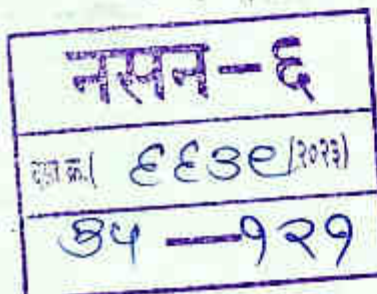 नसन-६
दस्त क्र.( ६६३९/२०२३)
३५ — १२१